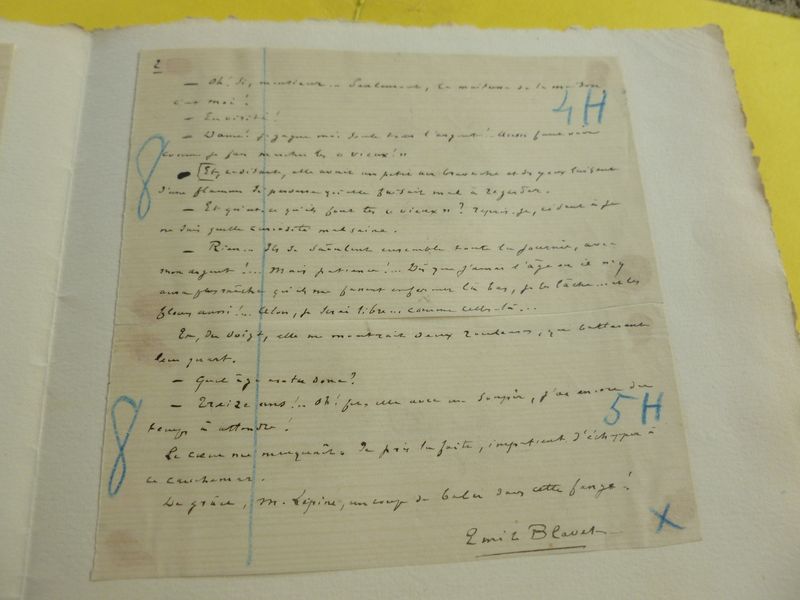 2
— Oh! Si, monsieur... Seulement, la maîtresse de la maison
c'est moi!
4H
— En vérité!
— Dame! je gagne moi seule tous l'argent!.. Aussi faut voir
comme je fais marcher les « vieux »!
8
— Et, ce disant, elle avait un petit air bravache et des yeux luisant
d'une flamme si perverse qu'elle faisait mal à regarder.
— Et qu'est-ce qu'ils font tes « vieux »? repris-je, cédant à je
ne sais quelle curiosité malsaine.
— Rien... Ils se saoulent ensemble toute la journée, avec
mon argent!... Mais patience!... Dès que j'aurai l'âge où il n'y
aura plus mèche qu'ils me fassent enfermer là bas, je les lâche... et les
fleurs aussi!... Alors, je serai libre... comme celles-là...
Et, du doigt, elle me montrait deux rouleuses, qui battaient
leur quart.
— Quel âge as-tu donc?
— Treize ans!.. Oh! fit-elle avec un soupir, j'ai encore du
temps à attendre!
8
5H
Le cœur me manquait. Je pris la fuite, impatient d'échapper à
ce cauchemar.
De grâce, M. Lépine, un coup de balai dans cette fange!
Emile Blavet
X